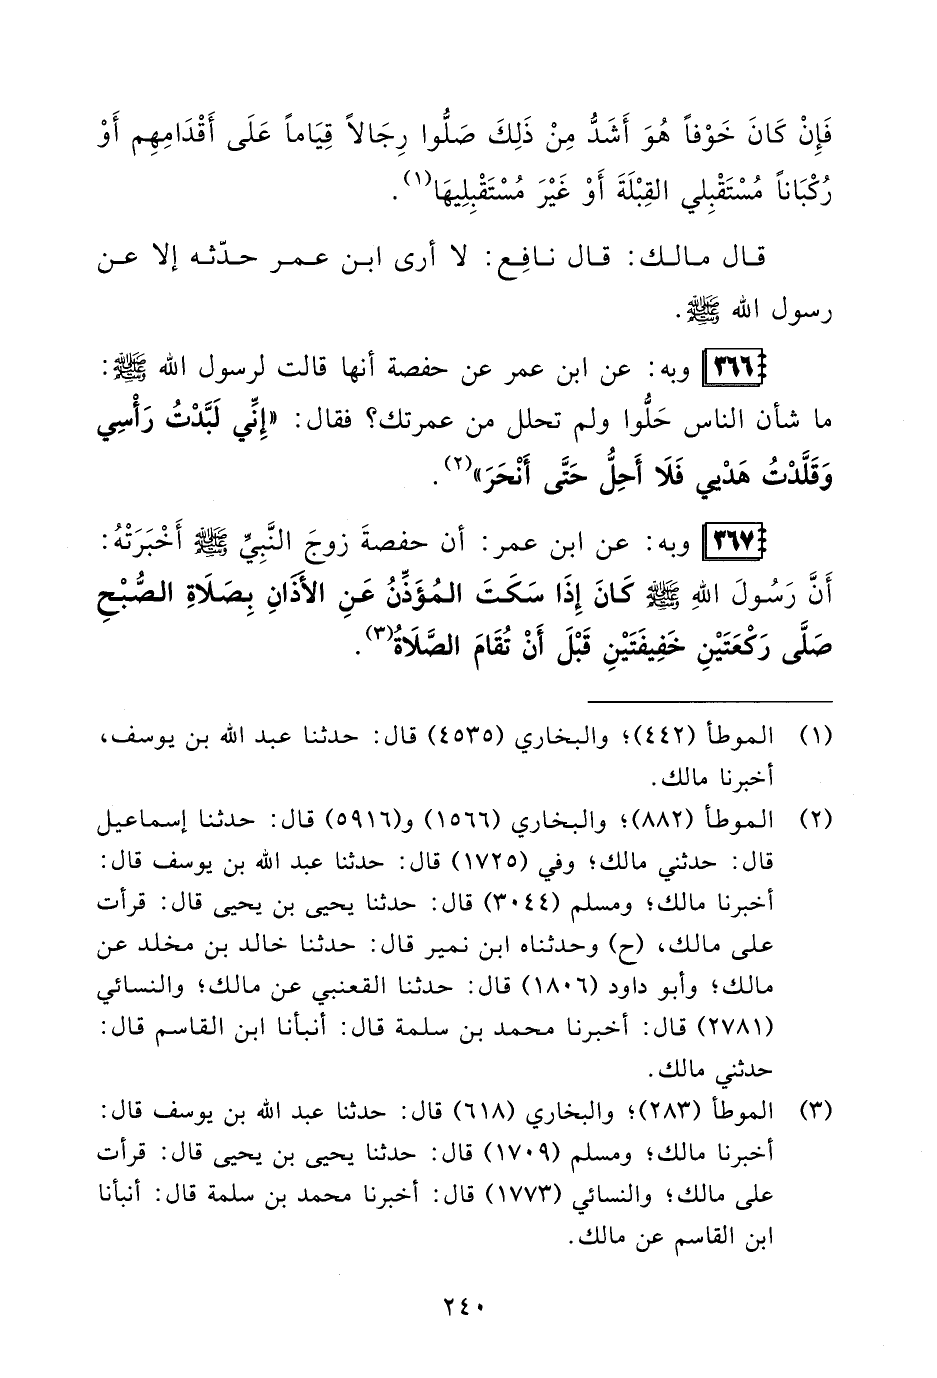 فَإِنْ كَانَ خَوْفاً هُوَ أَشَدُّ مِنْ ذَلِكَ صَلُّوا رِجَالاً قِيَاماً عَلَى أَقْدَامِهِم أَوْ
رُكْبَاناً مُسْتَقْبِلي القِبْلَةَ أَوْ غَيْرَ مُسْتَقْبِلِيهَا(١).
قال مالك: قال نافِع: لا أرى ابن عمر حدّثه إلا عن
رسول الله ﷺ.
٣٦٦ وبه: عن ابن عمر عن حفصة أنها قالت لرسول الله ﷺ:
ما شأن الناس حَلُّوا ولم تحلل من عمرتك؟ فقال: «إِنِّي لَبَّدْتُ رَأْسِي
وَقَلَّدْتُ هَدْيي فَلَا أَحِلُّ حَتَّى أَنْحَرَ»(٢).
٣٦٧ وبه: عن ابن عمر: أن حفصةَ زوجَ النَّبِيِّ ﷺ أَخْبَرَتْهُ:
أَنَّ رَسُولَ اللهِ ﷺ كَانَ إِذَا سَكَتَ المُؤَذِّنُ عَنِ الأَذَانِ بِصَلَاةِ الصُّبْحِ
صَلَّى رَكْعَتَيْنِ خَفِيفَتَيْنِ قَبْلَ أَنْ تُقَامَ الصَّلَاةُ(٣).
(١) الموطأ (٤٤٢)؛ والبخاري (٤٥٣٥) قال: حدثنا عبد الله بن يوسف،
أخبرنا مالك.
(٢) الموطأ (٨٨٢)؛ والبخاري (١٥٦٦) و(٥٩١٦) قال: حدثنا إسماعيل
قال: حدثني مالك؛ وفي (١٧٢٥) قال: حدثنا عبد الله بن يوسف قال:
أخبرنا مالك؛ ومسلم (٣٠٤٤) قال: حدثنا يحيى بن يحيى قال: قرأت
على مالك، (ح) وحدثناه ابن نمير قال: حدثنا خالد بن مخلد عن
مالك؛ وأبو داود (١٨٠٦) قال: حدثنا القعنبي عن مالك؛ والنسائي
(٢٧٨١) قال: أخبرنا محمد بن سلمة قال: أنبأنا ابن القاسم قال:
حدثني مالك.
(٣) الموطأ (٢٨٣)؛ والبخاري (٦١٨) قال: حدثنا عبد الله بن يوسف قال:
أخبرنا مالك؛ ومسلم (١٧٠٩) قال: حدثنا يحيى بن يحيى قال: قرأت
على مالك؛ والنسائي (١٧٧٣) قال: أخبرنا محمد بن سلمة قال: أنبأنا
ابن القاسم عن مالك.
٢٤٠